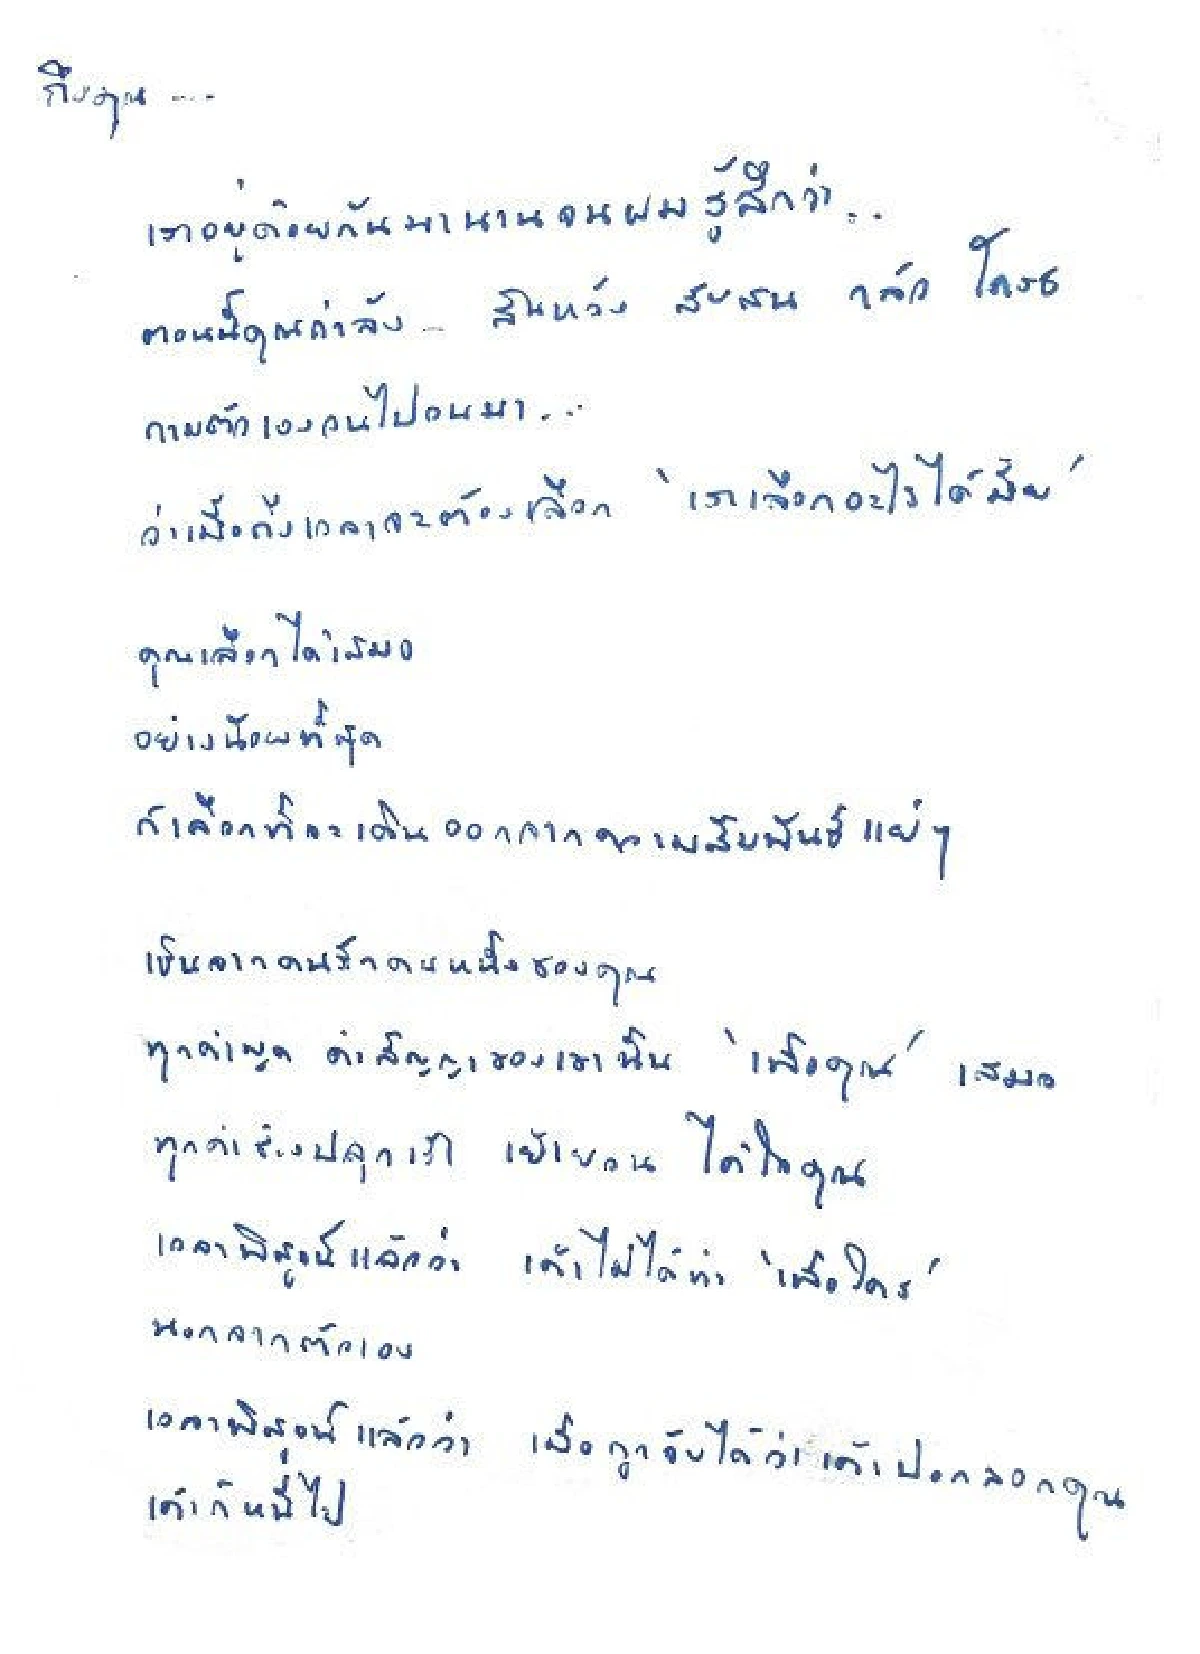 ถึงคุณ ....
เราอยู่ด้วยกันมานานจนผมรู้สึกว่า...
ตอนนี้คุณกำลัง... สิ้นหวัง สับสน กลัว โกรธ
ถามตัวเองวนไปวนมา...
ว่าเมื่อถึงเวลาจะต้องเลือก 'เราเลือกอะไรได้มั้ย'
คุณเลือกได้เสมอ
อย่างน้อยที่สุด
ก็เลือกที่จะเดินออกจากความสัมพันธ์แย่ๆ
เช่นจากคนรักคนหนึ่งของคุณ
ทุกคำพูด คำสัญญาของเขานั้น 'เพื่อคุณ' เสมอ
ทุกคำช่างปลุกเร้า เย้ายวน ได้ใจคุณ
เวลาพิสูจน์แล้วว่า เค้าไม่ได้ทำ 'เพื่อใคร'
นอกจากตัวเอง
เวลาพิสูจน์แล้วว่า เมื่อถูกจับได้ว่าเค้าปอกลอกคุณ
เค้าก็หนีไป